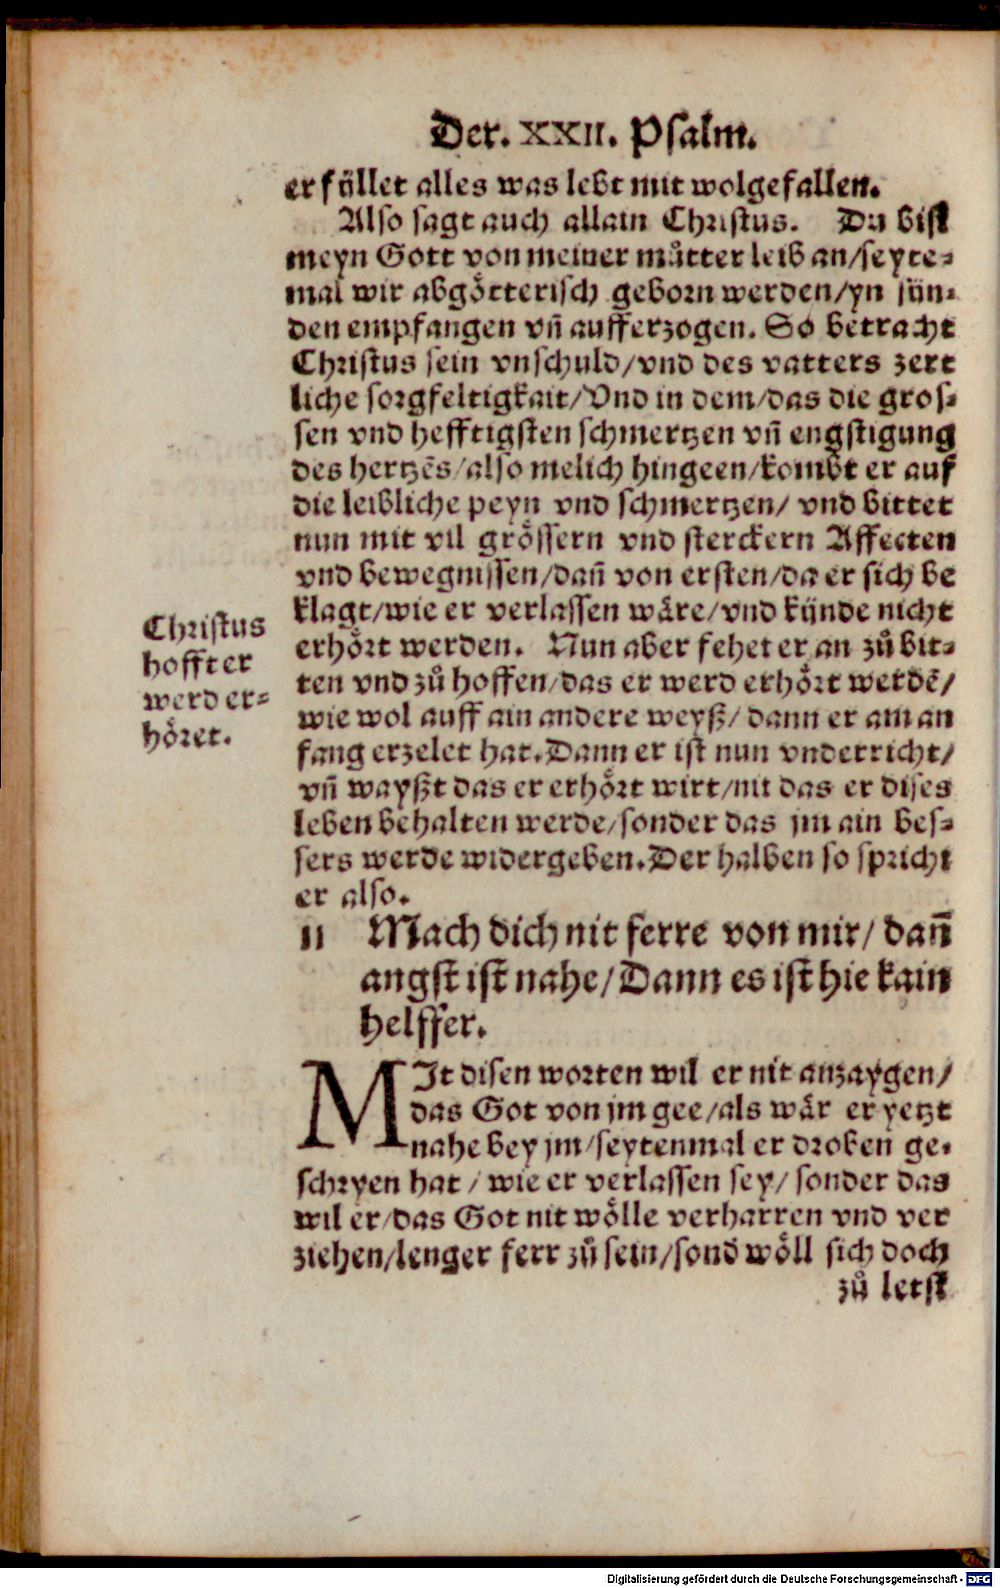 Der. XXII. Psalm.
erfüllet alles was lebt mit wolgefallen.
Also sagt auch allain Christus. Du bist
meyn Gott von meiner můtter leib an/seyte-
mal wir abgötterisch geborn werden/yn sün-
den empfangen vñ aufferzogen. So betracht
Christus sein vnschuld/vnd des vatters zert
liche sorgfeltigkait/Vnd in dem/das die gros-
sen vnd hefftigsten schmertzen vñ engstigung
des hertzẽs/also melich hingeen/kombt er auf
die leibliche peyn vnd schmertzen/ vnd bittet
nun mit vil grössern vnd sterckern Affecten
vnd bewegnissen/dañ von ersten/da er sich be
klagt/wie er verlassen wäre/vnd künde nicht
erhört werden. Nun aber fehet er an zů bit-
ten vnd zů hoffen/das er werd erhört werdẽ/
wie wol auff ain andere weyß/ dann er am an
fang erzelet hat. Dann er ist nun vnderricht/
vñ wayßt das er erhört wirt/nit das er dises
leben behalten werde/sonder das jm ain bes-
sers werde widergeben. Der halben so spricht
er also.
Christus
hofft er
werd er-
höret.
11 Mach dich nit ferre von mir/ dañ
angst ist nahe/Dann es ist hie kain
helffer.
MIt disen worten wil er nit anzaygen/
das Got von jm gee/als wär er yetzt
nahe bey jm/seytenmal er droben ge-
schryen hat/ wie er verlassen sey/ sonder das
wil er/das Got nit wölle verharren vnd ver
ziehen/lenger ferr zů sein/sond wöll sich doch
zů letst
Digitalisierung gefördert durch die Deutsche Forschungsgemeinschaft - DFG